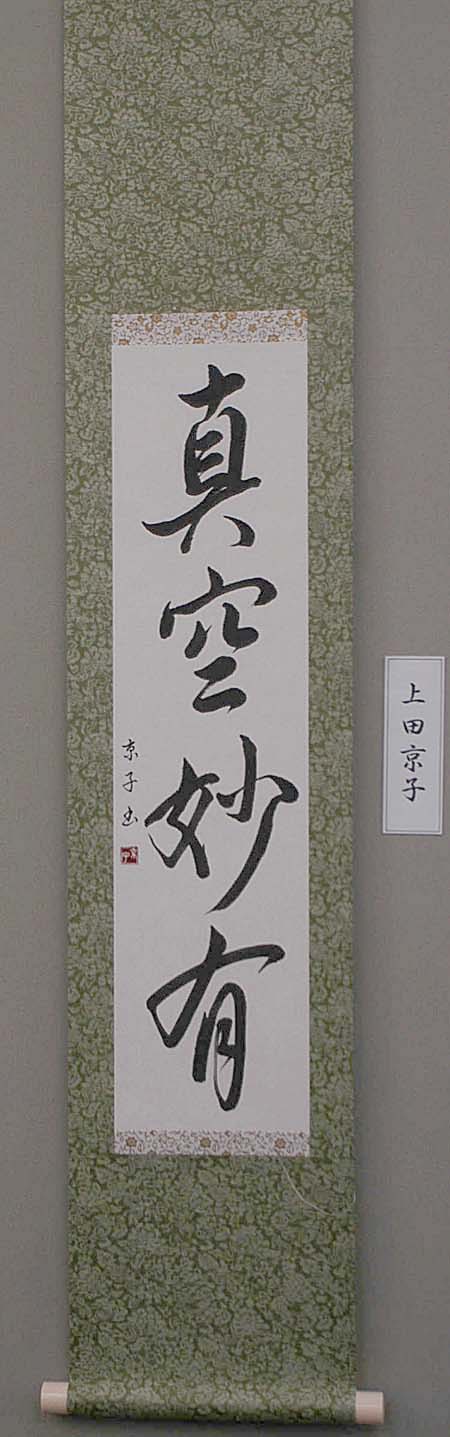 真空妙有
京子書
上田京子